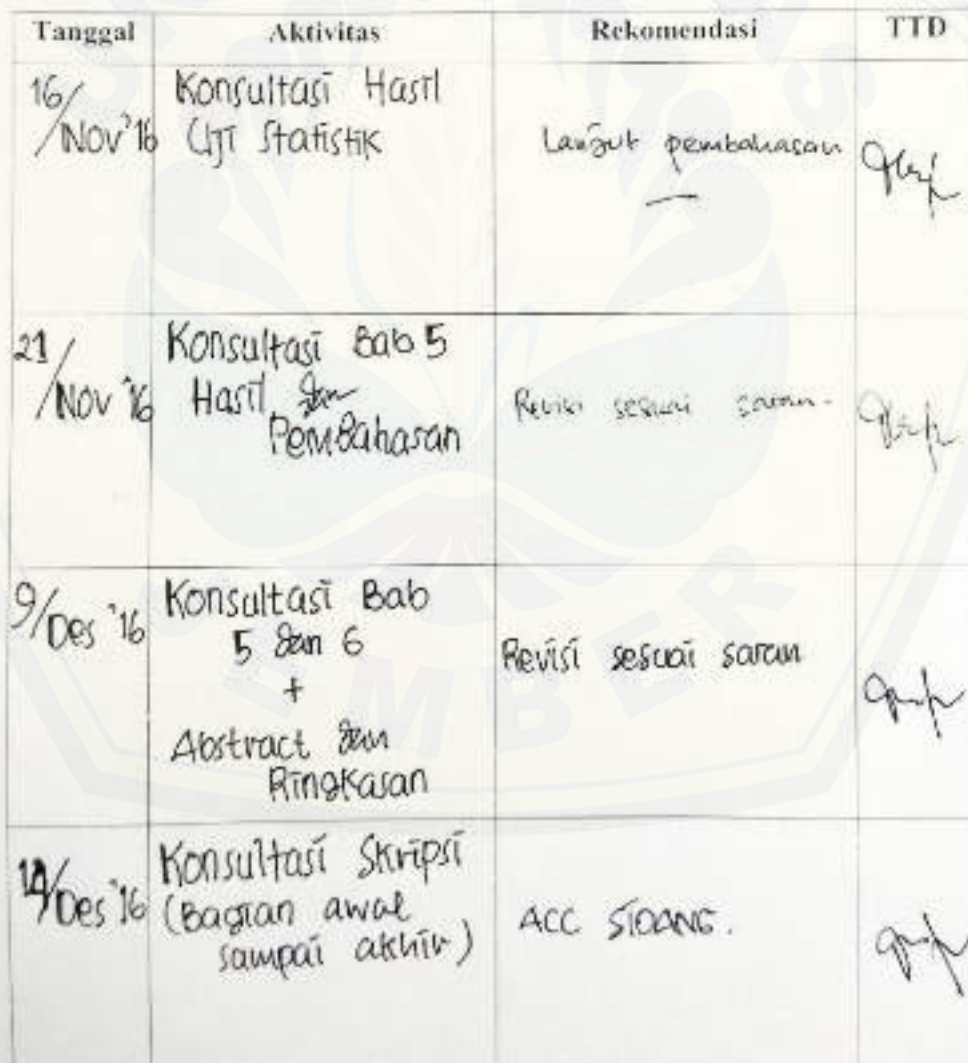 Tanggal Aktivitas Rekomendasi TTD
16/Nov'16 Konsultasi Hasil
Uji Statistik
Lanjut pembahasan
21/Nov '16 Konsultasi Bab 5
Hasil dan
Pembahasan
Revisi sesuai saran-
9/Des '16 Konsultasi Bab
5 dan 6
+
Abstract dan
Ringkasan
Revisi sesuai saran
14/Des '16 Konsultasi Skripsi
(Bagian awal
sampai akhir)
ACC SIDANG.
EMBER